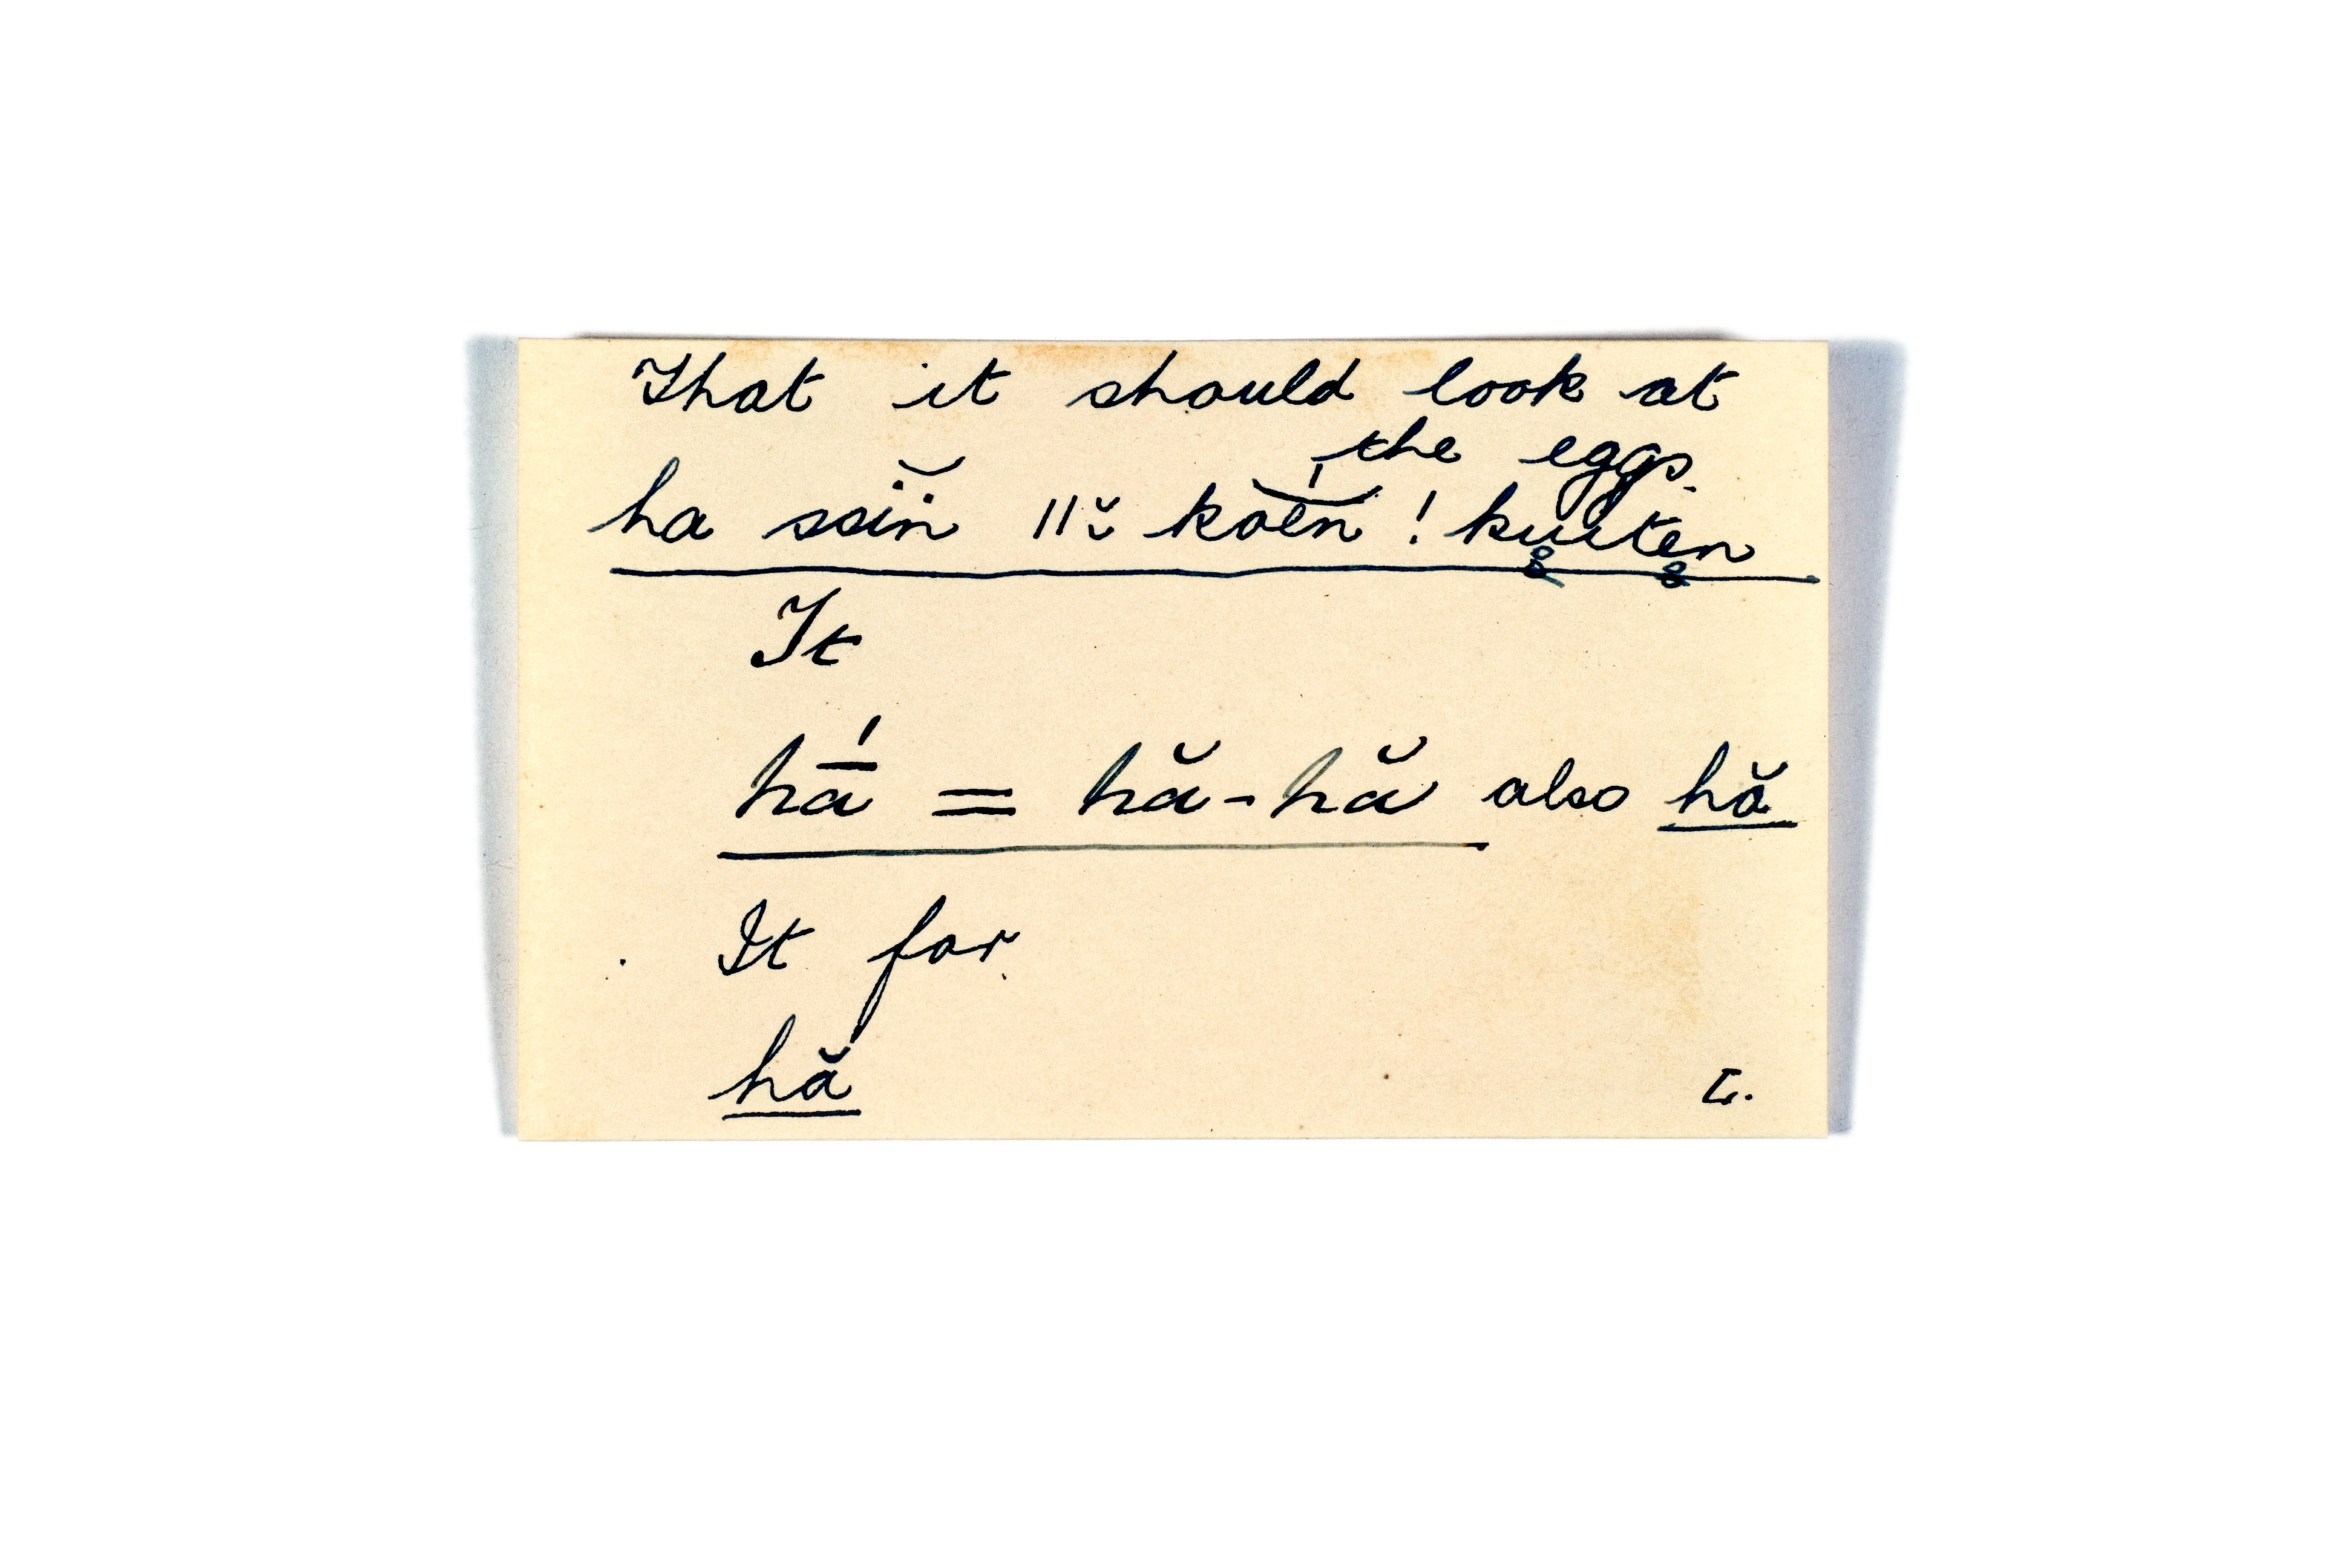 That it should look at
the eggs.
ha ssĭ̈n ǁ̆ koe̯ń !kuïten
It
hā́ = hă-hă also hă
It for
hă
L.